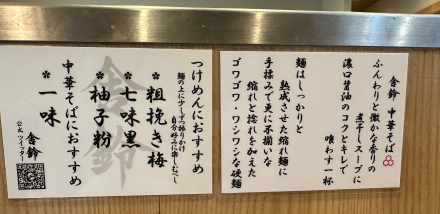 舎鈴 中華そば
ふんわりと微かな香りの
煮干しスープに
濃口醤油のコクとキレで
喰わす一杯
麺はしっかりと
熟成させた縮れ麺に
手揉みで更に不揃いな
縮れと捻れを加えた
ゴワゴワ・ワシワシな硬麺
つけめんにおすすめ
麺の上に少しずつ振りかけ
自分好みに楽しむべし
*粗挽き梅
*七味黒
*柚子粉
中華そばにおすすめ
*一味
舎鈴
公式ツイッター
舎鈴